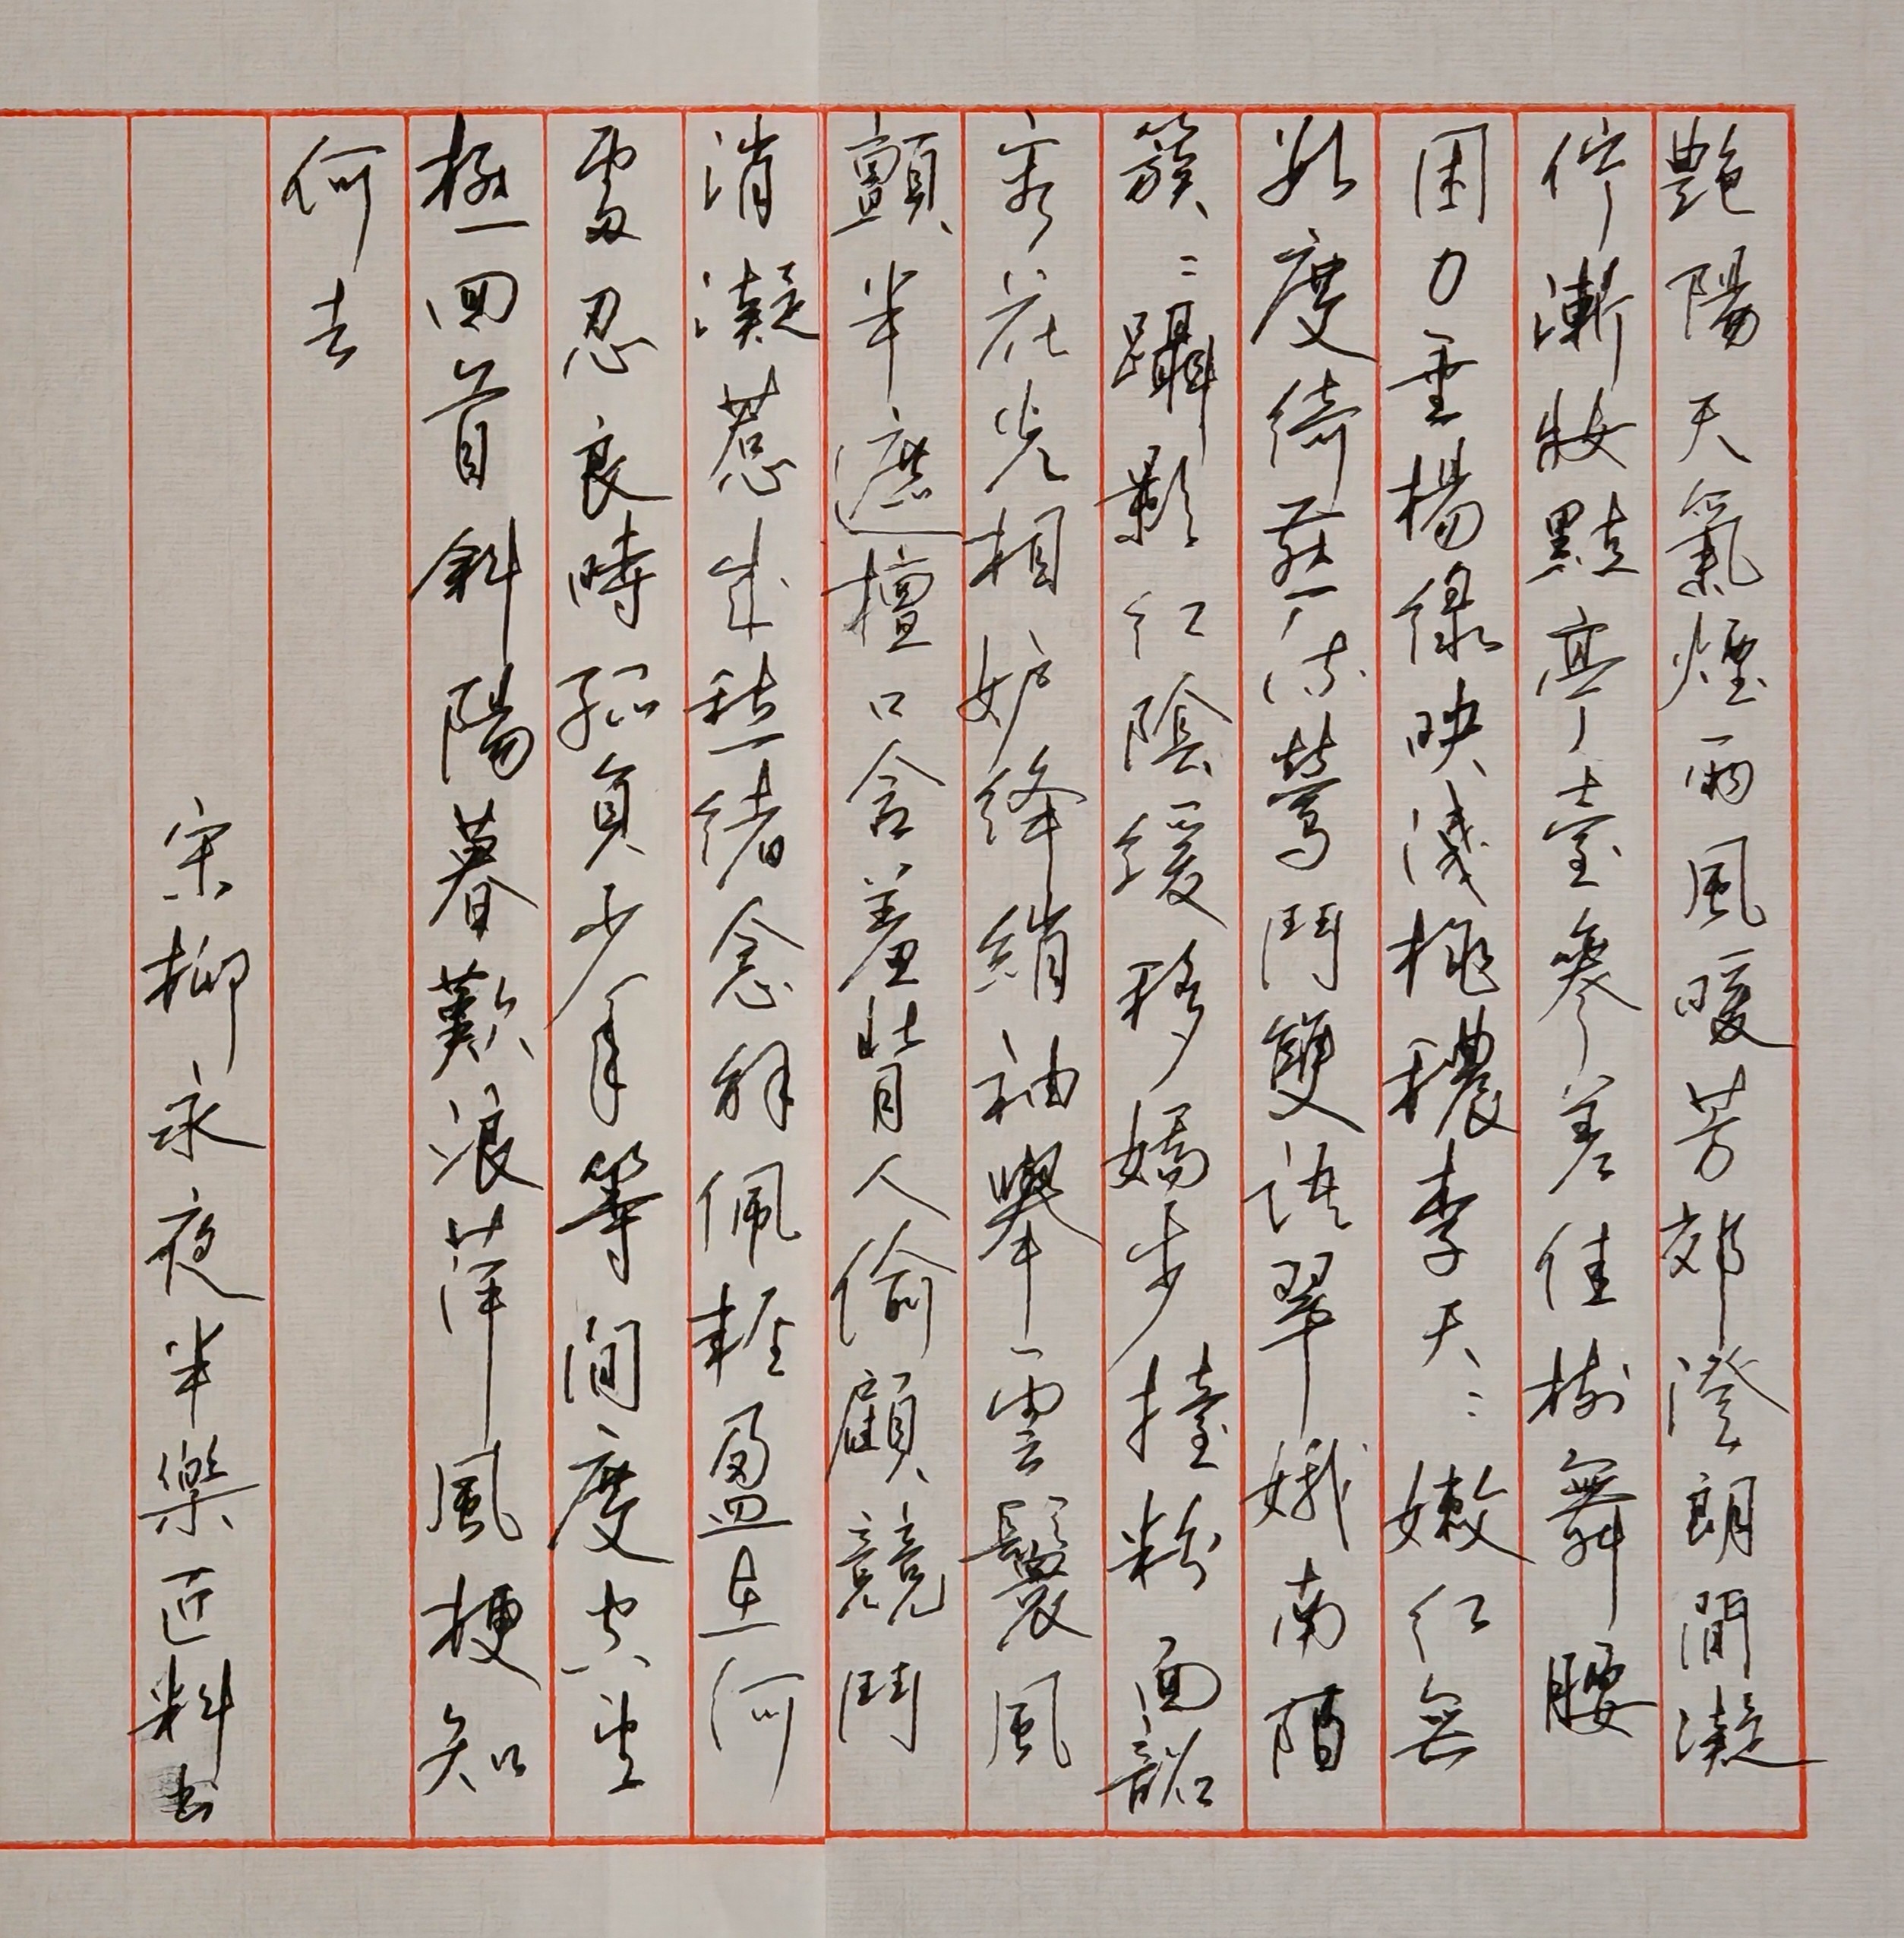 艷陽天氣煙雨風暖芳郊澄朗閒凝
佇漸妝點亭臺參差佳樹舞腰
困力垂楊綠映淺桃穠李夭〻嫩紅無
數度綺燕流鶯鬥雙語翠娥南陌
簇〻躡影紅陰緩移嬌步擡粉面韶
容花光相妒絳綃袖舉雲鬟風
顫半遮檀口含羞背人偷顧競鬥
消凝惹成愁緒念解佩輕盈在何
處忍良時孤負少年等閒度空望
極回首斜陽暮歎浪萍風梗知
何去
宋柳永夜半樂匠料書